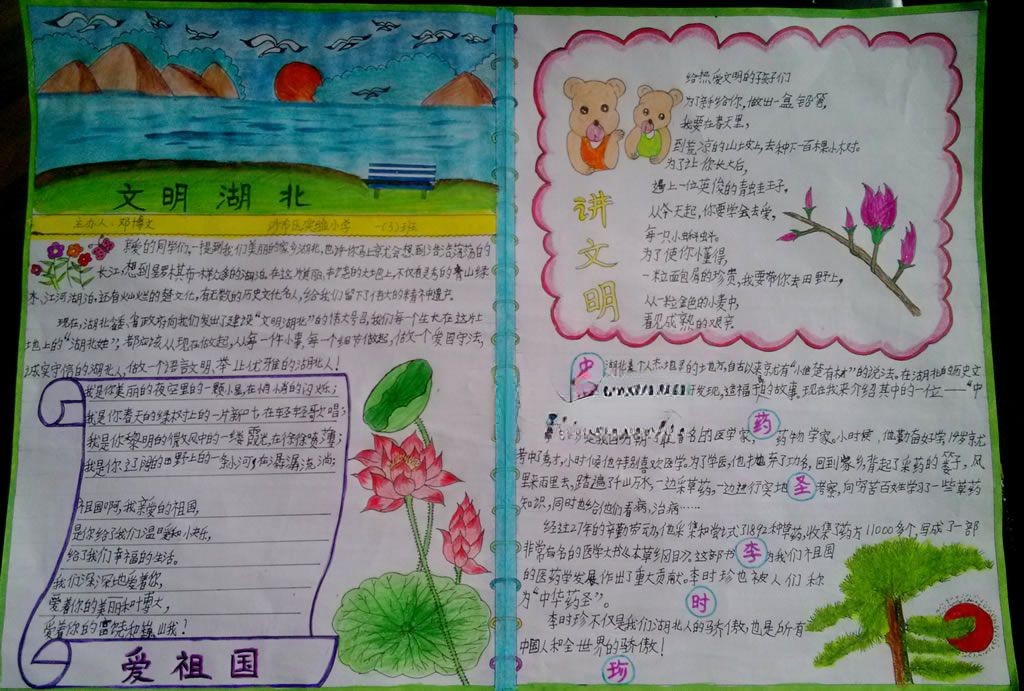 文明湖北
主办人:邓博文 沙市区实验小学 一(3)班
亲爱的同学们,一提到我们美丽的家乡湖北,也许你马上就会想到浩浩荡荡的
长江,想到星罗棋布一样大的湖泊,在这片美丽、丰茂的大地上,不仅有灵秀的青山绿
水、江河湖泊,还有灿烂的楚文化,有无数的历史文化名人,给我们留下了伟大的精神遗产。
现在,湖北省委、省政府向我们发出了建设“文明湖北”的伟大号召,我们每个生长在这片土
地上的“湖北娃”,都应该从现在做起,从每一件小事,每一个细节做起,做一个爱国守法,
诚实守信的湖北人,做一个语言文明、举止优雅的湖北人!
我是你美丽的夜空里的一颗小星,在悄悄的闪烁;
我是你春天的绿树上的一片新叶,在轻轻歌唱;
我是你黎明的微风中的一缕霞光,在徐徐喷薄;
我是你辽阔的田野上的一条小河,在潺潺流淌;
祖国啊,我亲爱的祖国,
是你给了我们温暖和快乐,
给了我们幸福的生活。
我们深深地爱着你,
爱着你的美丽和博大,
爱着你的富饶和雄
爱祖国
给热爱文明的孩子们
为了 给你,做出一盒铅笔,
我要在春天里,
到荒凉的山坡上,去种下一百棵小树。
为了让你长大后,
遇上一位英俊的青蛙王子,
从今天起,你要学会去爱,
每一只小蝌蚪。
为了使你懂得,
一粒面包屑的珍贵,我要带你去田野上,
从一粒金色的小麦中,
看见成熟的艰辛
讲文明
湖北是个人杰地灵的 地方,自古以来就有“惟楚有材”的说法。在湖北的历史文
发现,造福 的故事,现在我来介绍其中的一位——“中
药
有名的医学家、药物学家。小时候,他勤奋好学,14岁就
考中了秀才,小时候他特别喜欢医学。为了学医,他抛弃了功名,回到家乡,背起了采药的篓子,风
里来雨里去,踏遍了千山万水,一边采草药,一边进行实地考察,向穷苦百姓学习了一些草药
圣
知识,同时也给他们看病,治病……
经过27年的辛勤劳动,他采集和尝试了1892种草药,收集了药方11000多个,写成了一部
非常有名的医学大书《本草纲目》,这部书 为我们祖国
李
的医药学发展作出了重大贡献。李时珍也被人们称
为“中华药圣”。
时
李时珍不仅是我们湖北人的骄傲,也是所有
中国人和全世界的骄傲!
珍